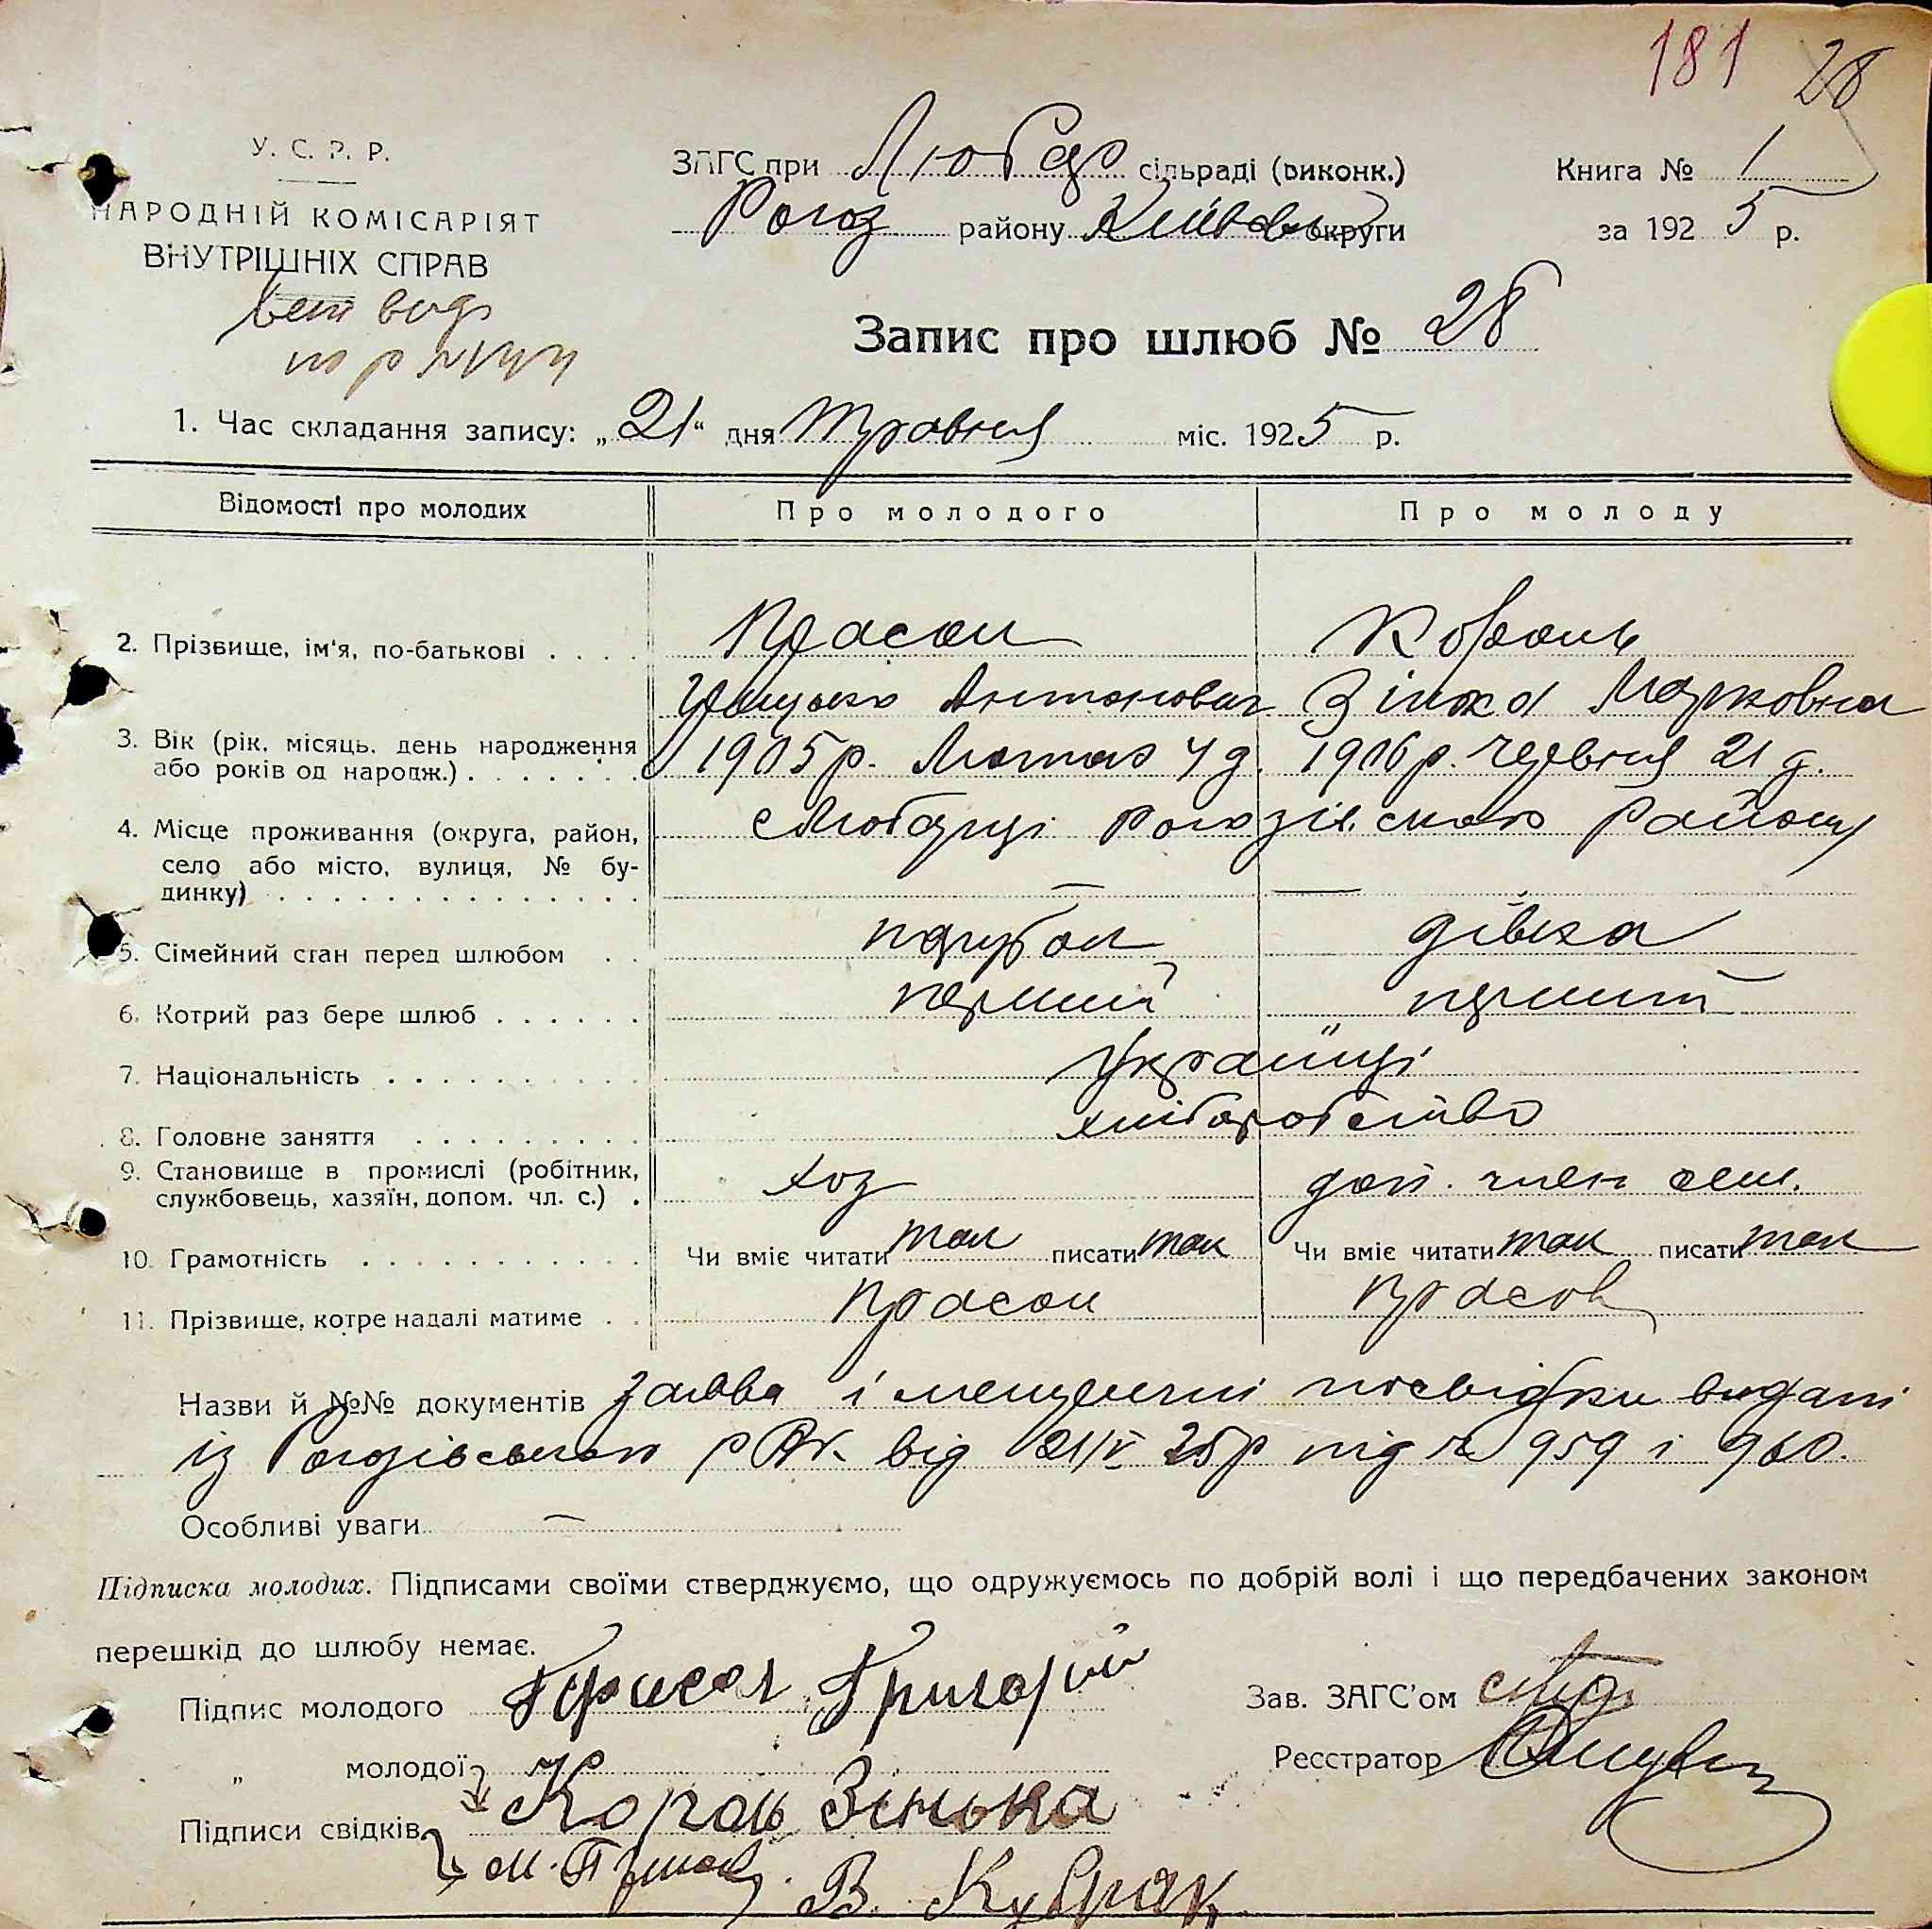 181 28
У. С. Р. Р.
НАРОДНІЙ КОМІСАРІЯТ
ВНУТРІШНІХ СПРАВ
ЗАГС при Любар сільраді (виконк.)
Рогоз району Київсь округи
Книга № 1
за 1925 р.
Запис про шлюб № 28
1. Час складання запису: „21“ дня травня міс. 1925 р.
Відомості про молодих Про молодого Про молоду
2. Прізвище, ім‘я, по-батькові Прасол Король
Грицько Антонович Зінька Марковна
3. Вік (рік, місяць, день народження
або років од народж.) 1905 р. Лютого 4 д. 1906 р. червня 21 д.
4. Місце проживання (округа, район, с Любарці Рогозівського району
село або місто, вулиця, № бу-
динку) — —
5. Сімейний стан перед шлюбом парубок дівка
6. Котрий раз бере шлюб перший перший
7. Національність Українці
8. Головне заняття хліборобство
9. Становище в промислі (робітник,
службовець, хазяїн, допом. чл. с.) хоз доп. член сем.
10. Грамотність Чи вміє читати так писати так Чи вміє читати так писати так
11. Прізвище, котре надалі матиме Прасол Прасол
Назви й №№ документів заява і посвідки видані
із Рогозівського від 21/V 25 р під № 959 і 960.
Особливі уваги —
Підписка молодих. Підписами своїми стверджуємо, що одружуємось по добрій волі і що передбачених законом
перешкід до шлюбу немає.
Підпис молодого Прасол Григорій
Зав. ЗАГС’ом
„ молодої
Реєстратор
Король Зінька
Підписи свідків
В.